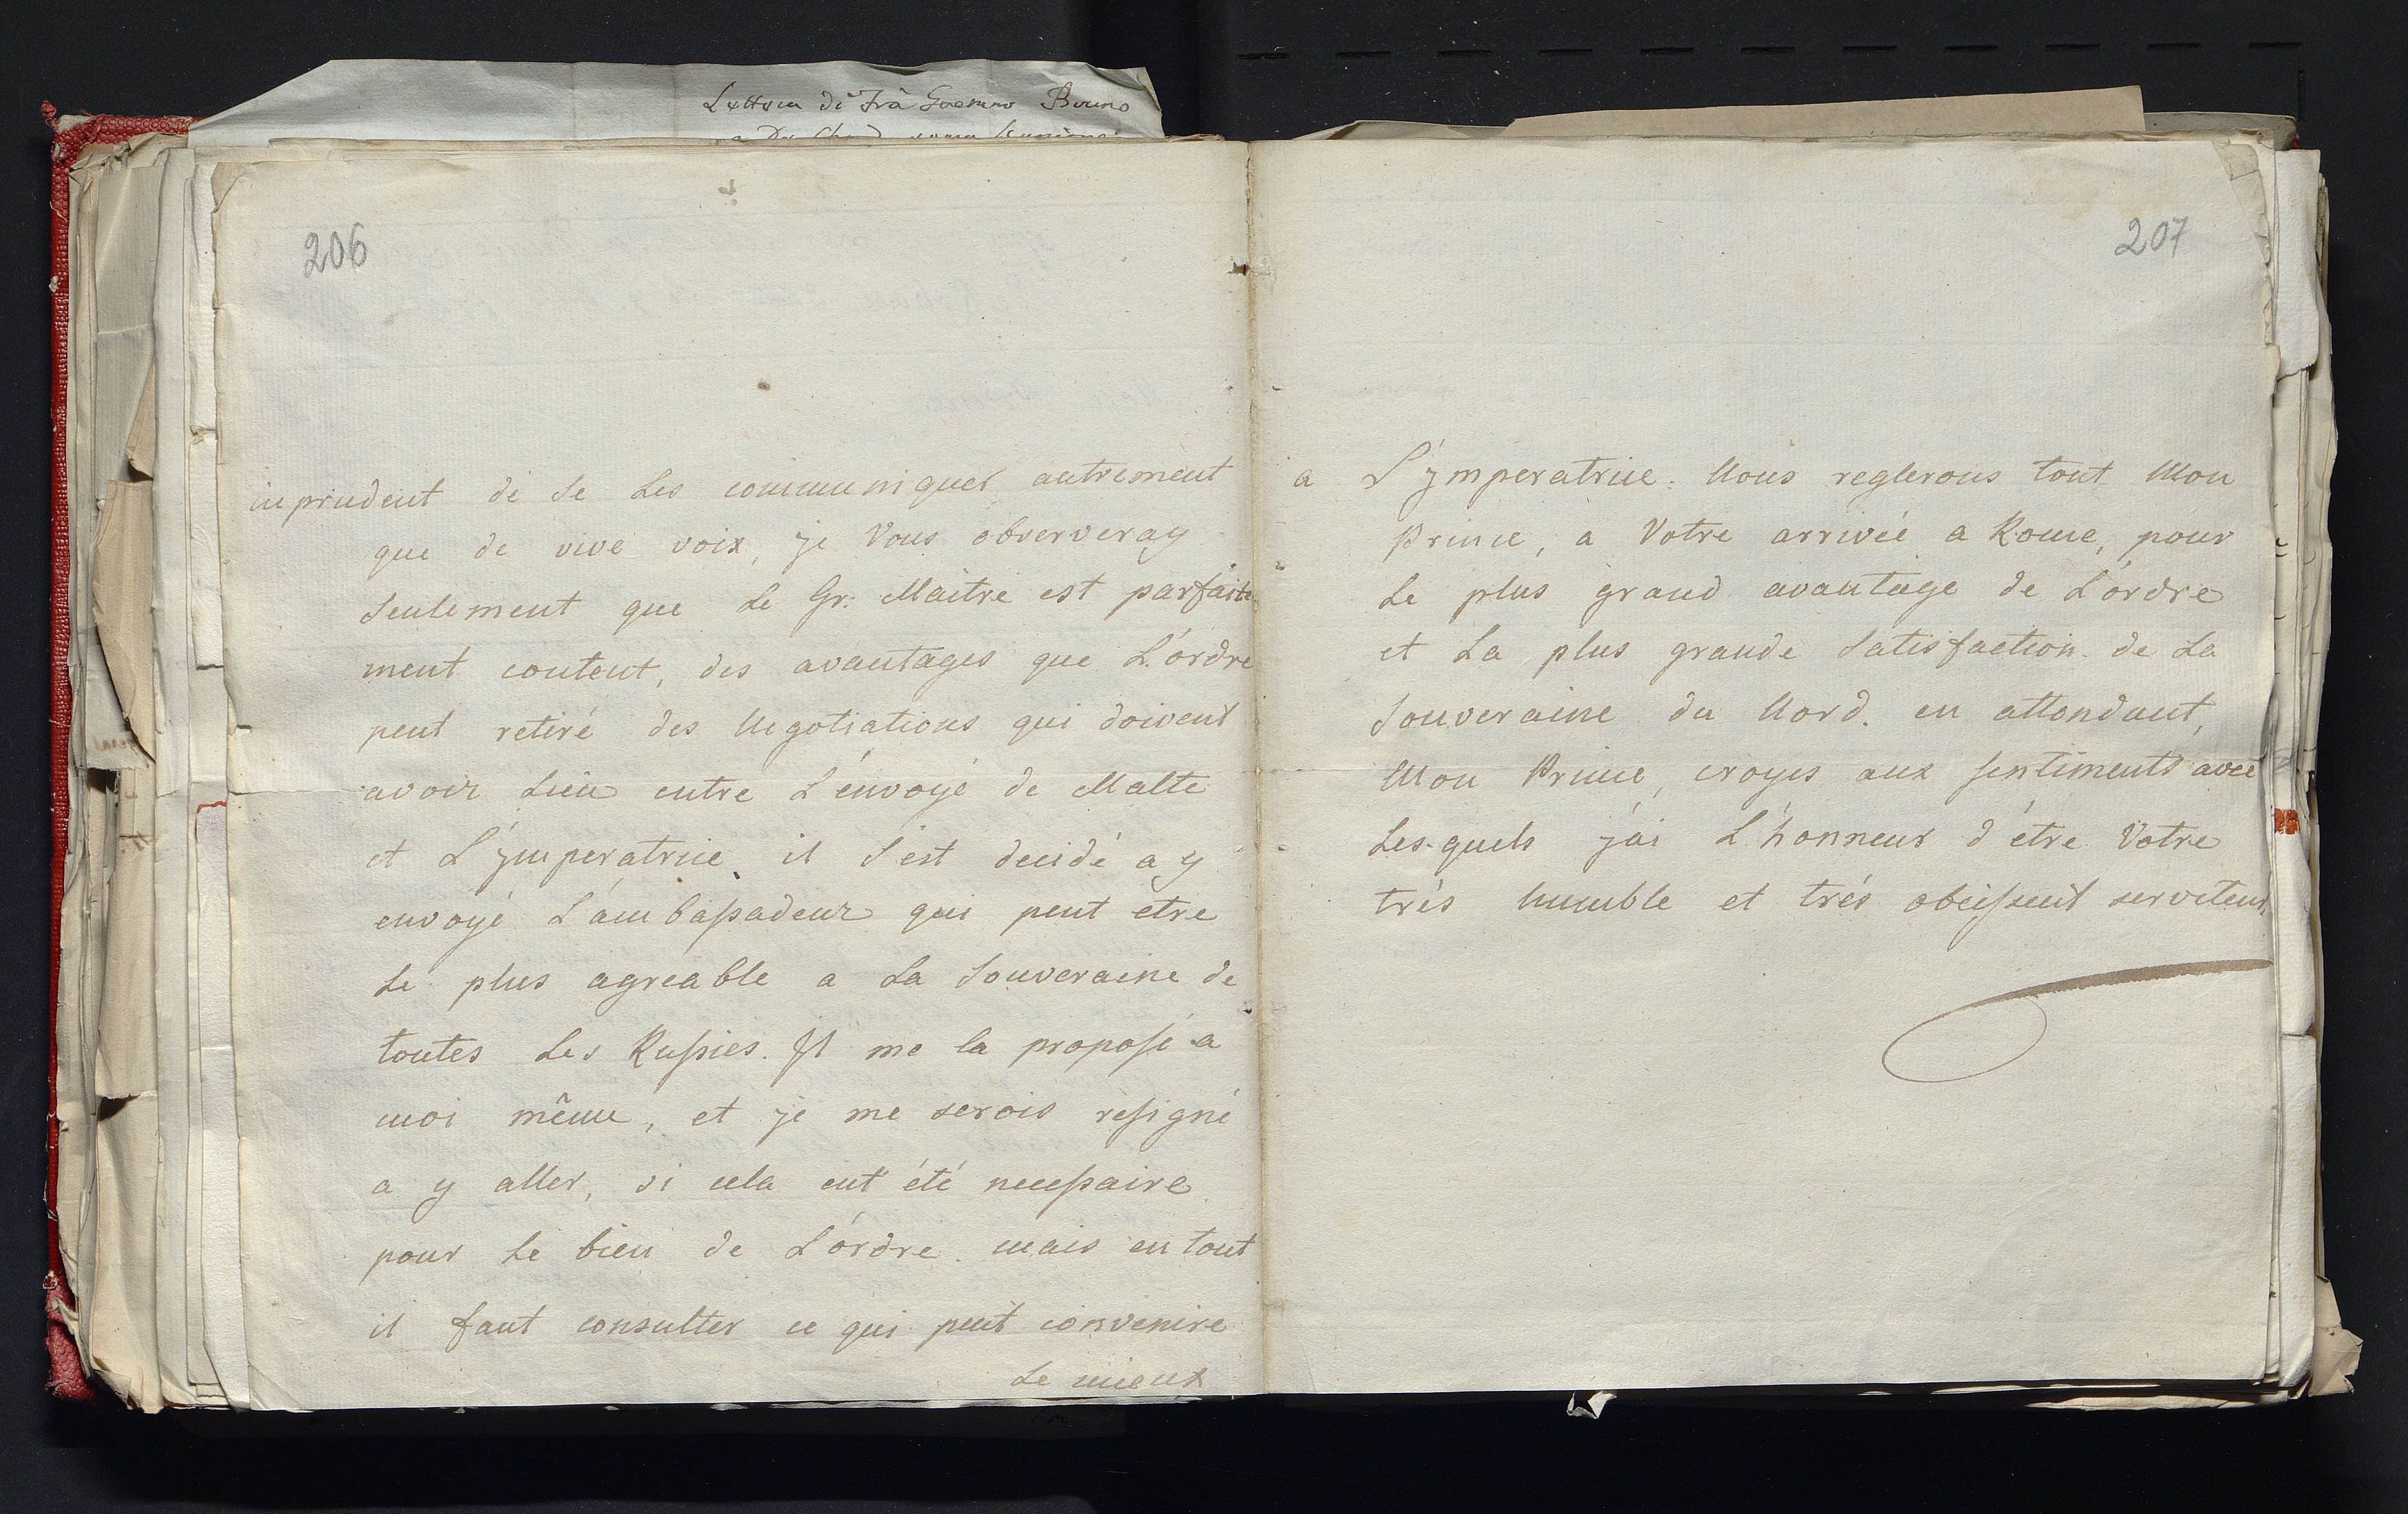 Lettera di Frà Gaetano Bruno
206
inprudent de se Les communiquer autrement
que de vive voix, je Vous observeray
seulement que Le Gr: Maitre est parfaite
ment content, des avantages que L'ordre
peut retiré des Negotiations qui doivent
avoir Lieu entre L'envoyé de Malte
et L'ymperatrice il s'est decidé a y
envoyé L'ambaſsadeur qui peut etre
Le plus agreable a La Souveraine de
toutes Les Ruſsies. Il me la propoſé a
moi même, et je me serois reſigné
a y aller, si cela eut été neceſsaire
pour Le bien de L'ordre. mais en tout
il faut consulter ce qui peut convenire
Le mieux
207
a L'ymperatrice. Nous reglerons tout Mon
Prince, a Votre arrivée a Rome, pour
Le plus grand avantage de L'ordre
et La plus grande Satisfaction de La
Souveraine du Nord. en attendant,
Mon Prince, croyes aux ſentiments avec
Les-quels j'ai L'honneur d'étre Votre
trés humble et trés obeiſsent serviteur.